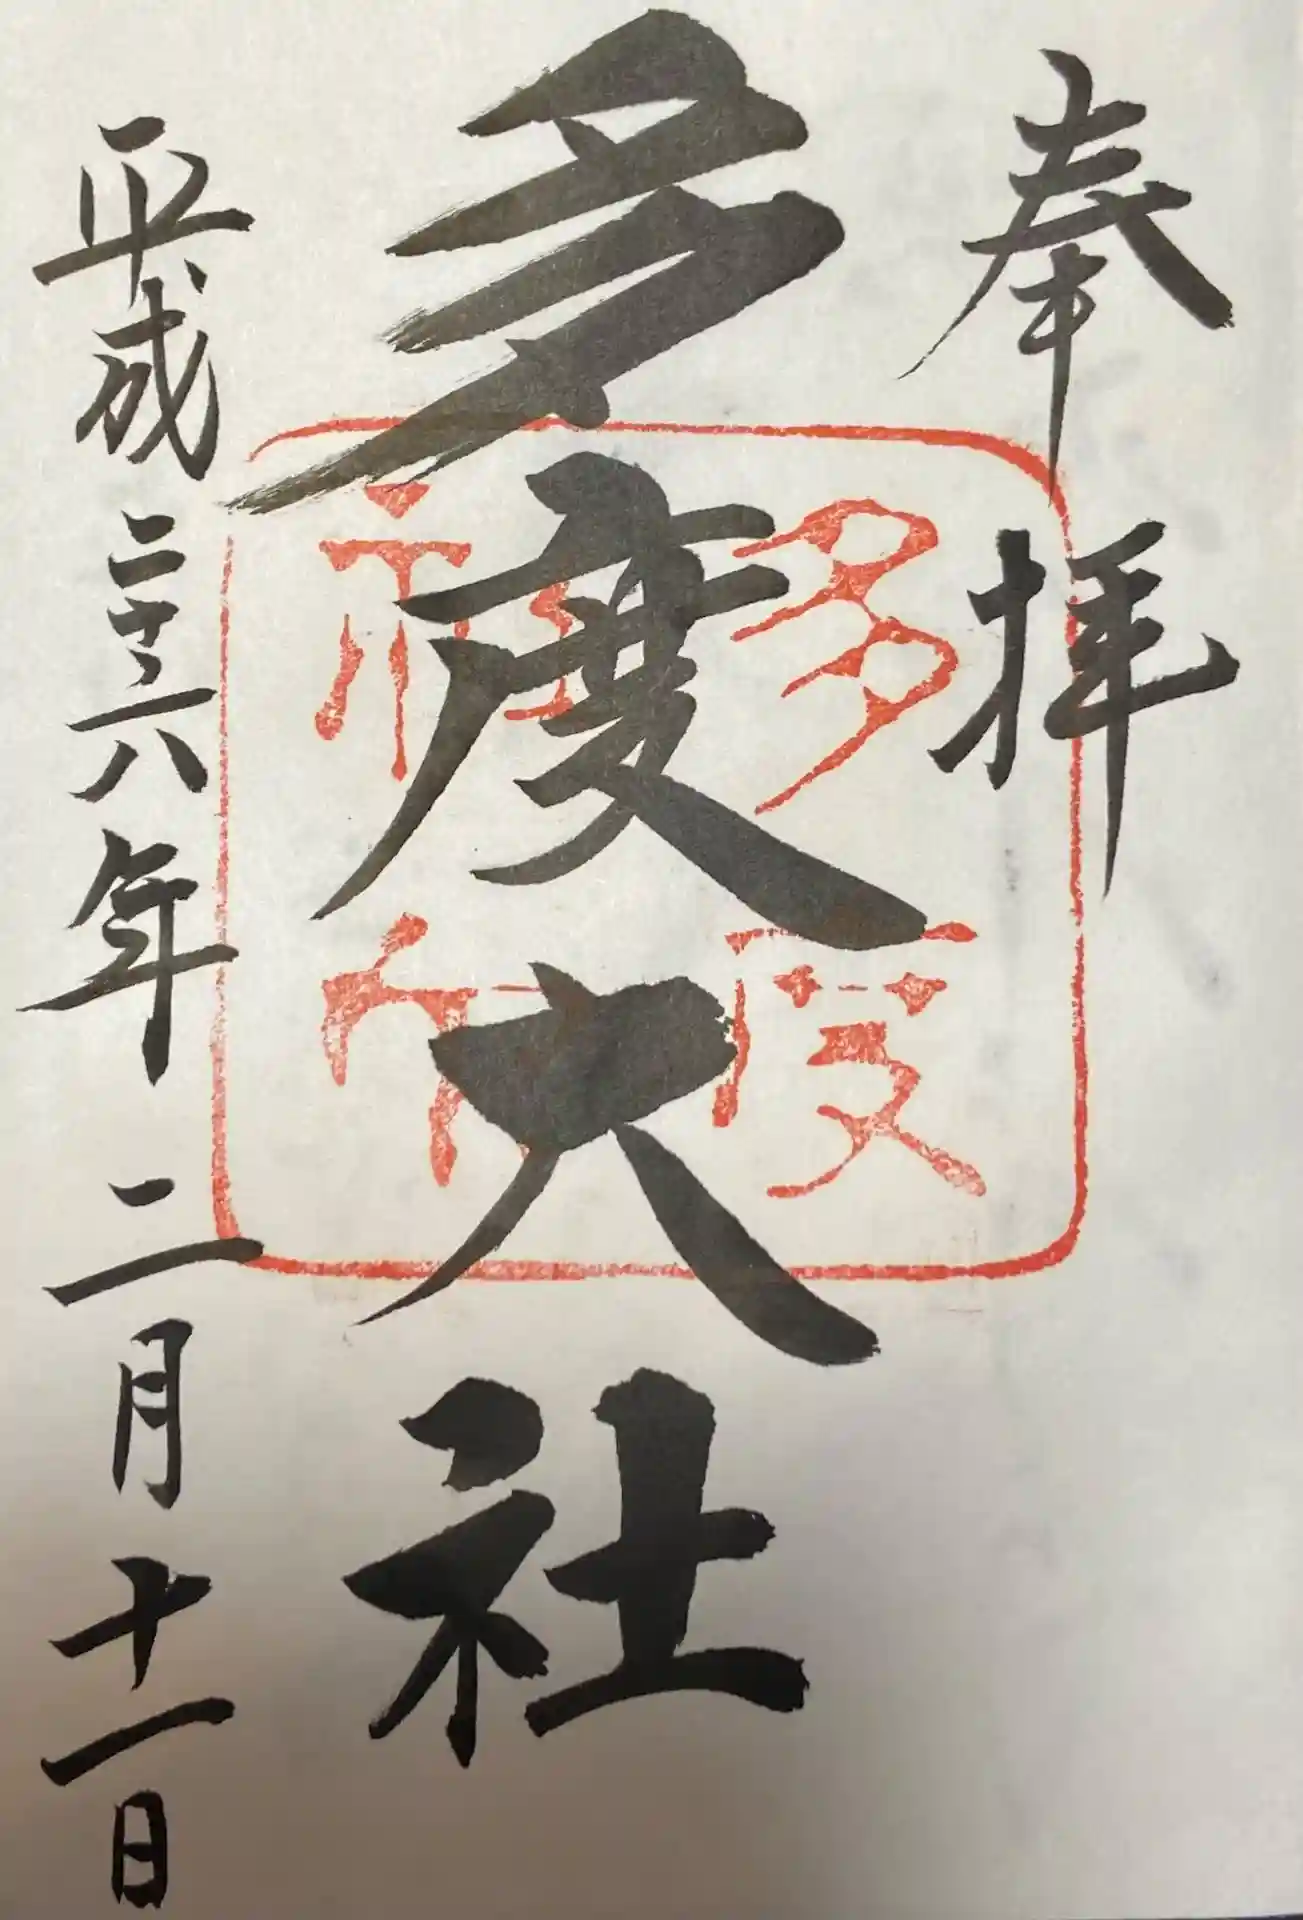 奉拝
多度大社
多度
神社
平成二十六年二月十一日